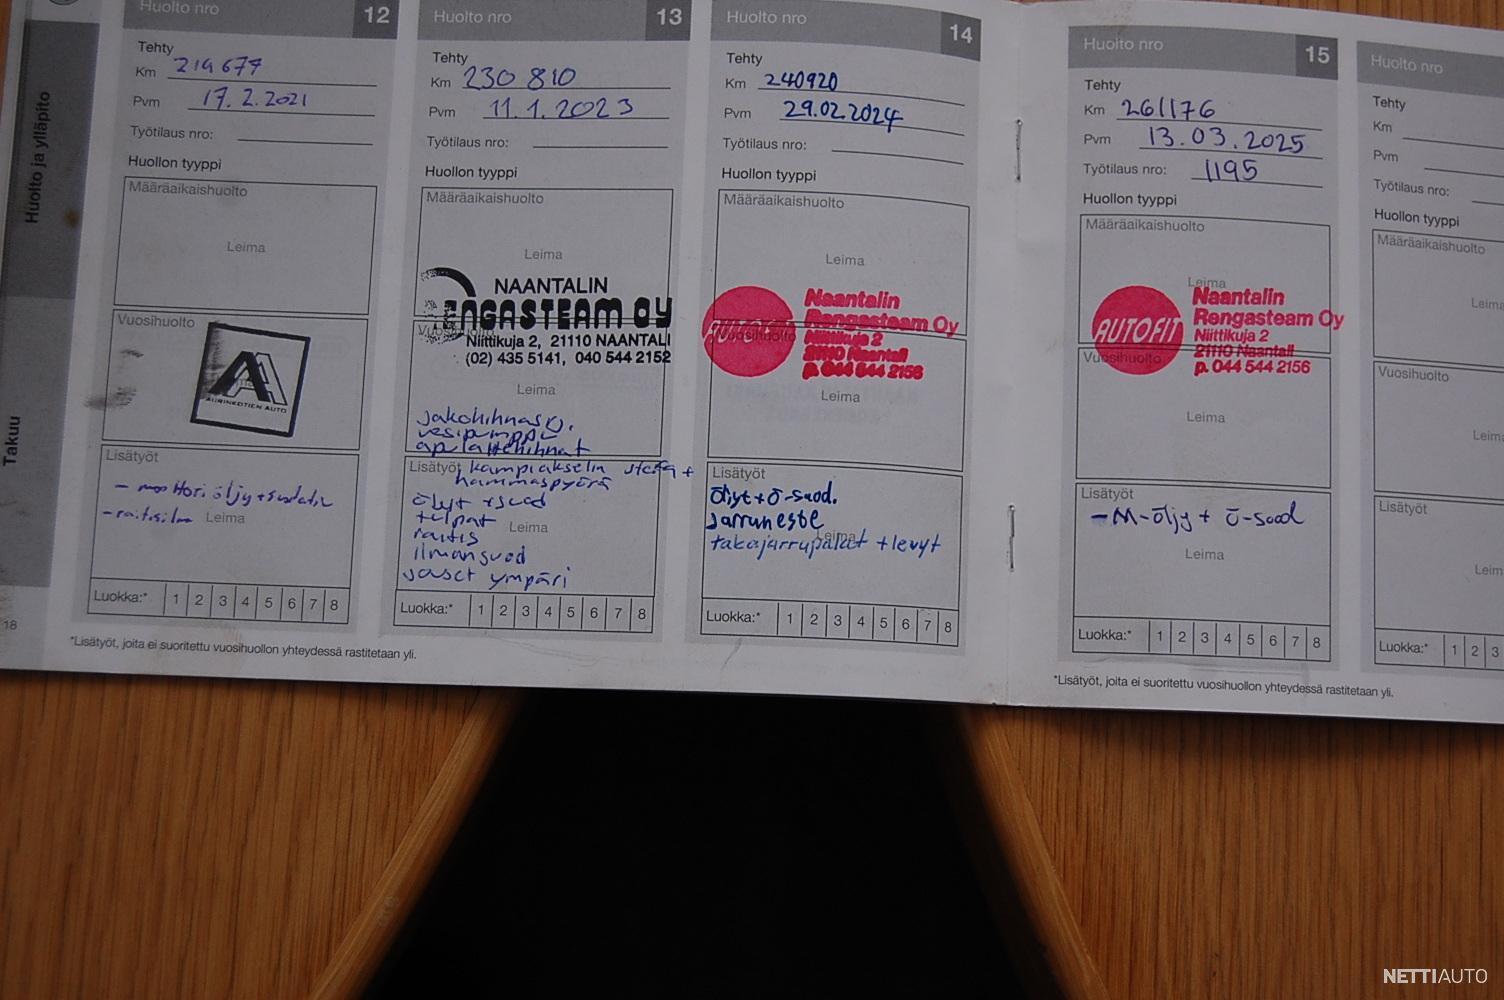 Huolto ja ylläpito
Takuu
18
Huolto nro 12
Tehty
Km 219677
Pvm 17.2.2021
Työtilaus nro:
Huollon tyyppi
Määräaikaishuolto
Leima
Vuosihuolto
AURINKOTIEN AUTO
Lisätyöt
- moottoriöljy + suodatin
- raitisilma
Leima
Luokka:* 1 2 3 4 5 6 7 8
*Lisätyöt, joita ei suoritettu vuosihuollon yhteydessä rastitetaan yli.
Huolto nro 13
Tehty
Km 230 810
Pvm 11.1.2023
Työtilaus nro:
Huollon tyyppi
Määräaikaishuolto
Leima
NAANTALIN
RENGASTEAM OY
Vuosihuolto
Niittikuja 2, 21110 NAANTALI
(02) 435 5141, 040 544 2152
Leima
jakohihnas
vesipumppu
apulaitehihnat
Lisätyöt kampiakselin stefa +
hammaspyörä
öljyt + suod
tulpat
Leima
raitis
ilmansuod
jaset ympäri
Luokka:* 1 2 3 4 5 6 7 8
Huolto nro 14
Tehty
Km 240920
Pvm 29.02.2024
Työtilaus nro:
Huollon tyyppi
Määräaikaishuolto
Leima
AUTOFIT
Naantalin
Rengasteam Oy
Niittikuja 2
21110 Naantali
p. 044 544 2156
Vuosihuolto
Leima
Lisätyöt
öljyt + ö-suod.
jarruneste
Leima
takajarrupalat + levyt
Luokka:* 1 2 3 4 5 6 7 8
Huolto nro 15
Tehty
Km 261176
Pvm 13.03.2025
Työtilaus nro: 1195
Huollon tyyppi
Määräaikaishuolto
Leima
AUTOFIT
Naantalin
Rengasteam Oy
Niittikuja 2
21110 Naantali
p. 044 544 2156
Vuosihuolto
Leima
Lisätyöt
- M-öljy + ö-suod
Leima
Luokka:* 1 2 3 4 5 6 7 8
*Lisätyöt, joita ei suoritettu vuosihuollon yhteydessä rastitetaan yli.
Huolto nro
Tehty
Km
Pvm
Työtilaus nro:
Huollon tyyppi
Määräaikaishuolto
Leima
Vuosihuolto
Leima
Lisätyöt
Leim
Luokka:* 1 2 3
NETTIAUTO